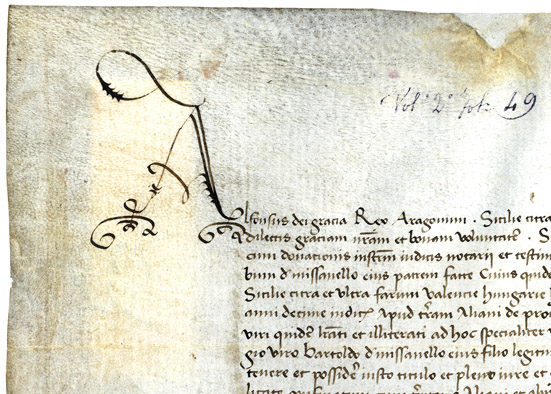 Vol. 2° fol. 49
Alfonsus dei gracia Rex Aragonum . Sicilie citra
dilectis graciam nram et bonam voluntate . S
cum donationis instrm iudicis notarii et testim
bum d missanello eius patrem facte Cuius quid
Sicilie citra et ultra farum valencie hungarie
anni decime indict Apud tram Aliani de
viri quide lrati et illiterati ad hoc specialiter
gio viro bartoldo d missanello eius filio legiti
tenere et posside iusto titulo et pleno iure et